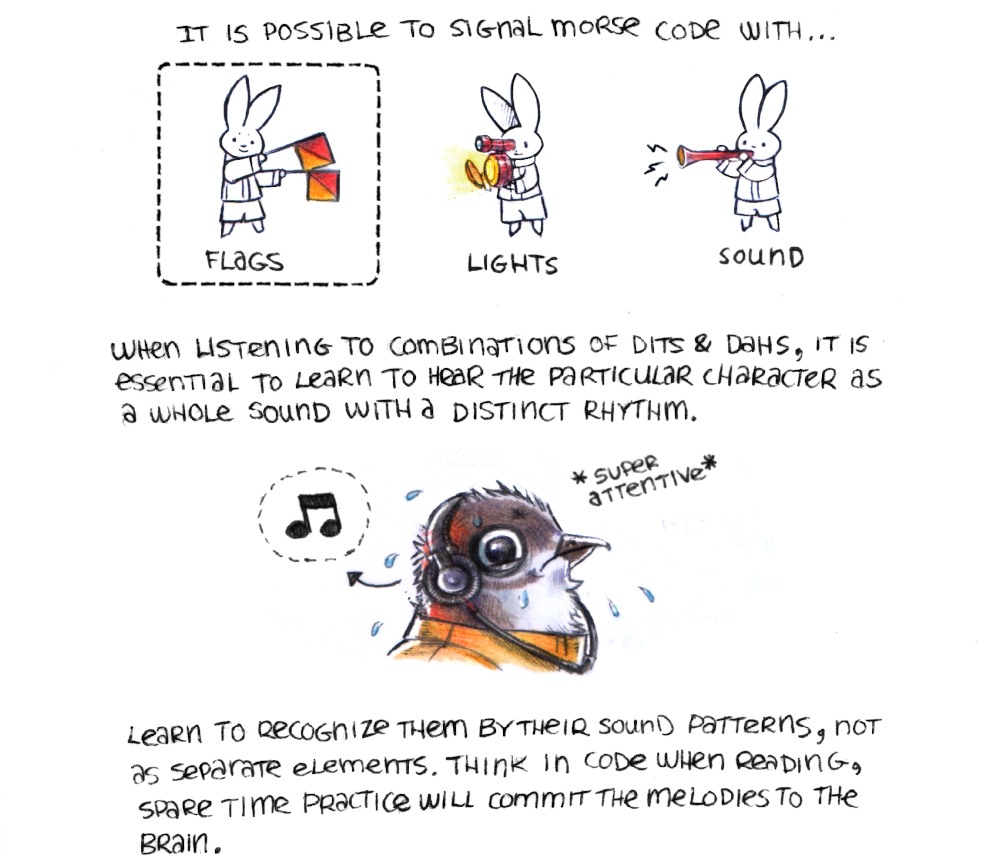 IT IS POSSIBLE TO SIGNAL MORSE CODE WITH...
FLAGS
LIGHTS
SOUND
WHEN LISTENING TO COMBINATIONS OF DITS & DAHS, IT IS
ESSENTIAL TO LEARN TO HEAR THE PARTICULAR CHARACTER AS
A WHOLE SOUND WITH A DISTINCT RHYTHM.
*SUPER
ATTENTIVE*
LEARN TO RECOGNIZE THEM BY THEIR SOUND PATTERNS, NOT
AS SEPARATE ELEMENTS. THINK IN CODE WHEN READING,
SPARE TIME PRACTICE WILL COMMIT THE MELODIES TO THE
BRAIN.